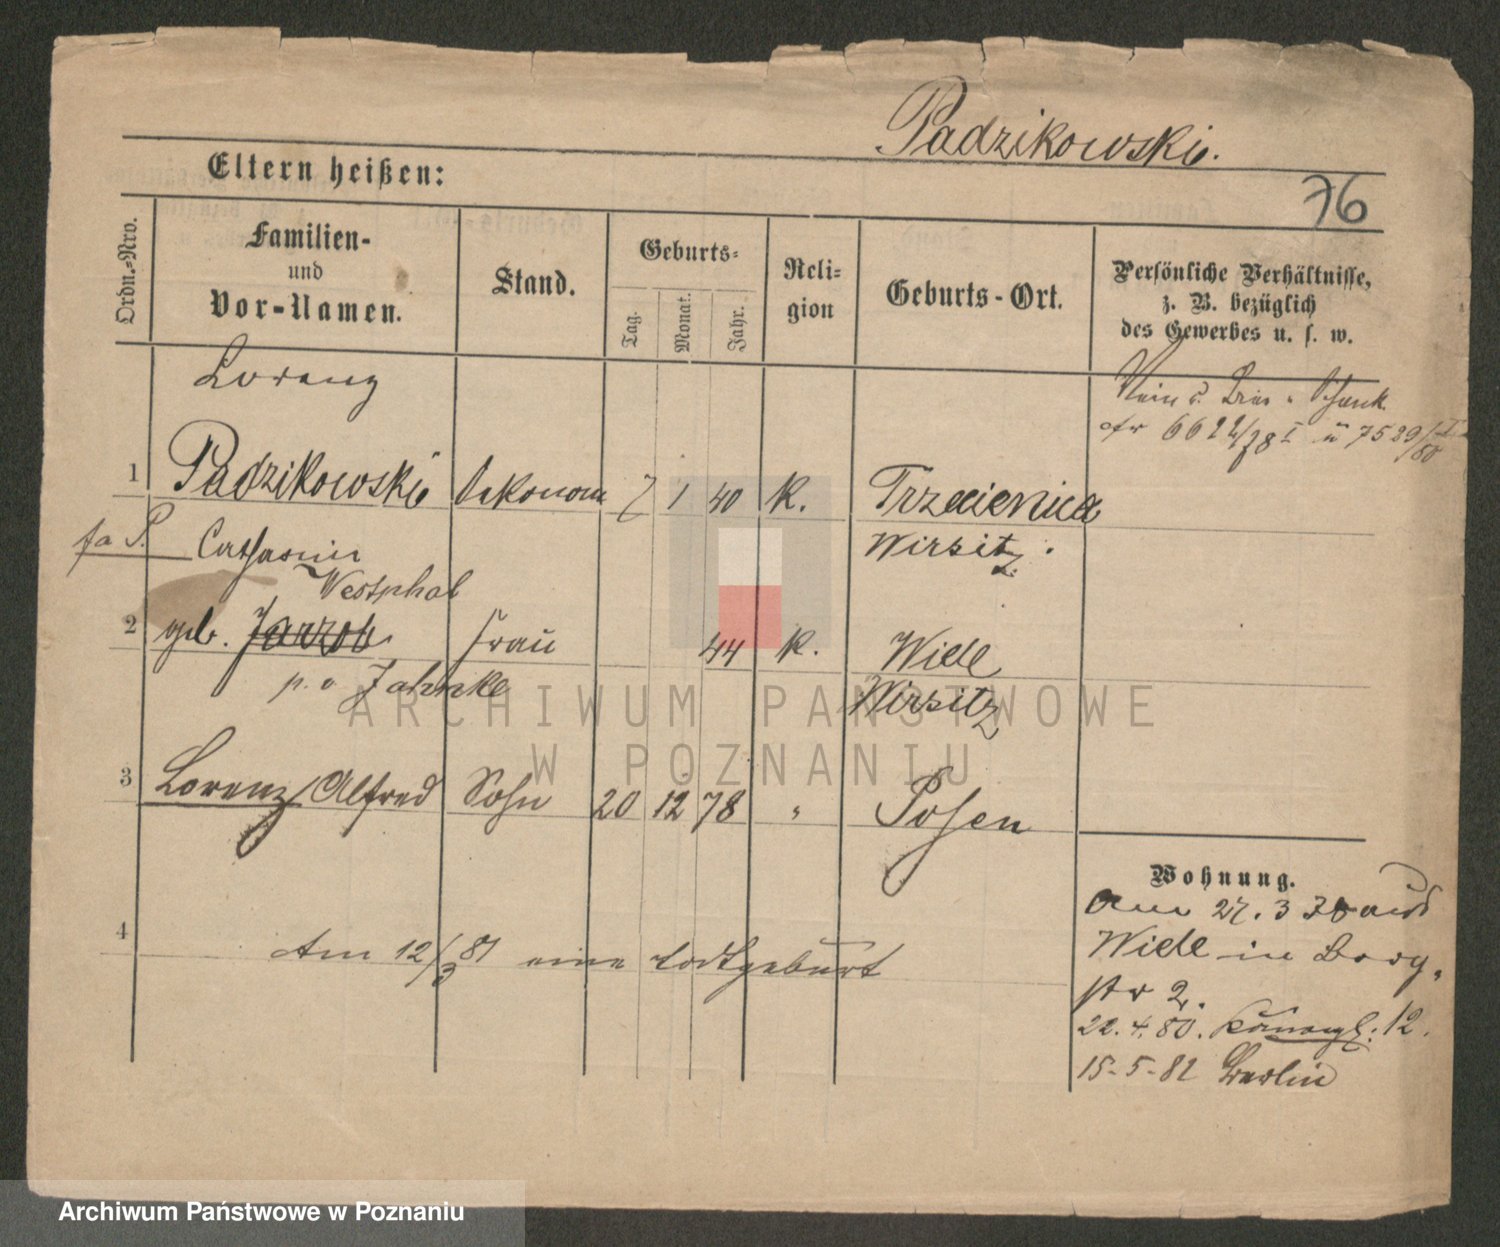 Padzikowski.
Eltern heißen:
76
Ordn.-Nro.
Familien-
und
Vor-Namen.
Stand.
Geburts-
Tag.
Monat.
Jahr.
Reli-
gion
Geburts-Ort.
Persönliche Verhältnisse,
z. B. bezüglich
des Gewerbes u. s. w.
Lorenz
Wein u. Bier Schank
66 /78 I u 7529/80
1 Padzikowski Oekonom 7 1 40 K. Trzecienica
Wirsitz.
fa P. Catharina
Westphal
2 geb. Frau 44 K. Wiele
p. o Jahnke Wirsitz
3 Lorenz Alfred Sohn 20 12 78 " Posen
4
Am 12/3 81 eine Todtgeburt
Wohnung.
Am 27. 3 78 aus
Wiele in Berg,
str 2.
22. 4. 80. 12.
15-5-82 Berlin
ARCHIWUM PAŃSTWOWE
W POZNANIU
Archiwum Państwowe w Poznaniu